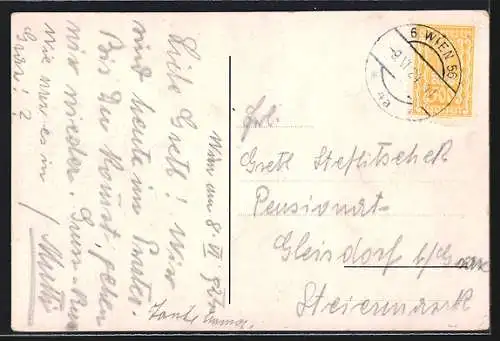 Wien am 8. VI
Liebe Gretl! Wir
sind heute im Prater.
Bis Du kommst, gehen
wir wieder. Gruss u. Kuss
Wie war es in
Graz? ?
Mutti
Tante
6 WIEN 56
4a
Frl.
Gretl Steflitschek
Pensionat
Gleisdorf b/Graz
Steiermark